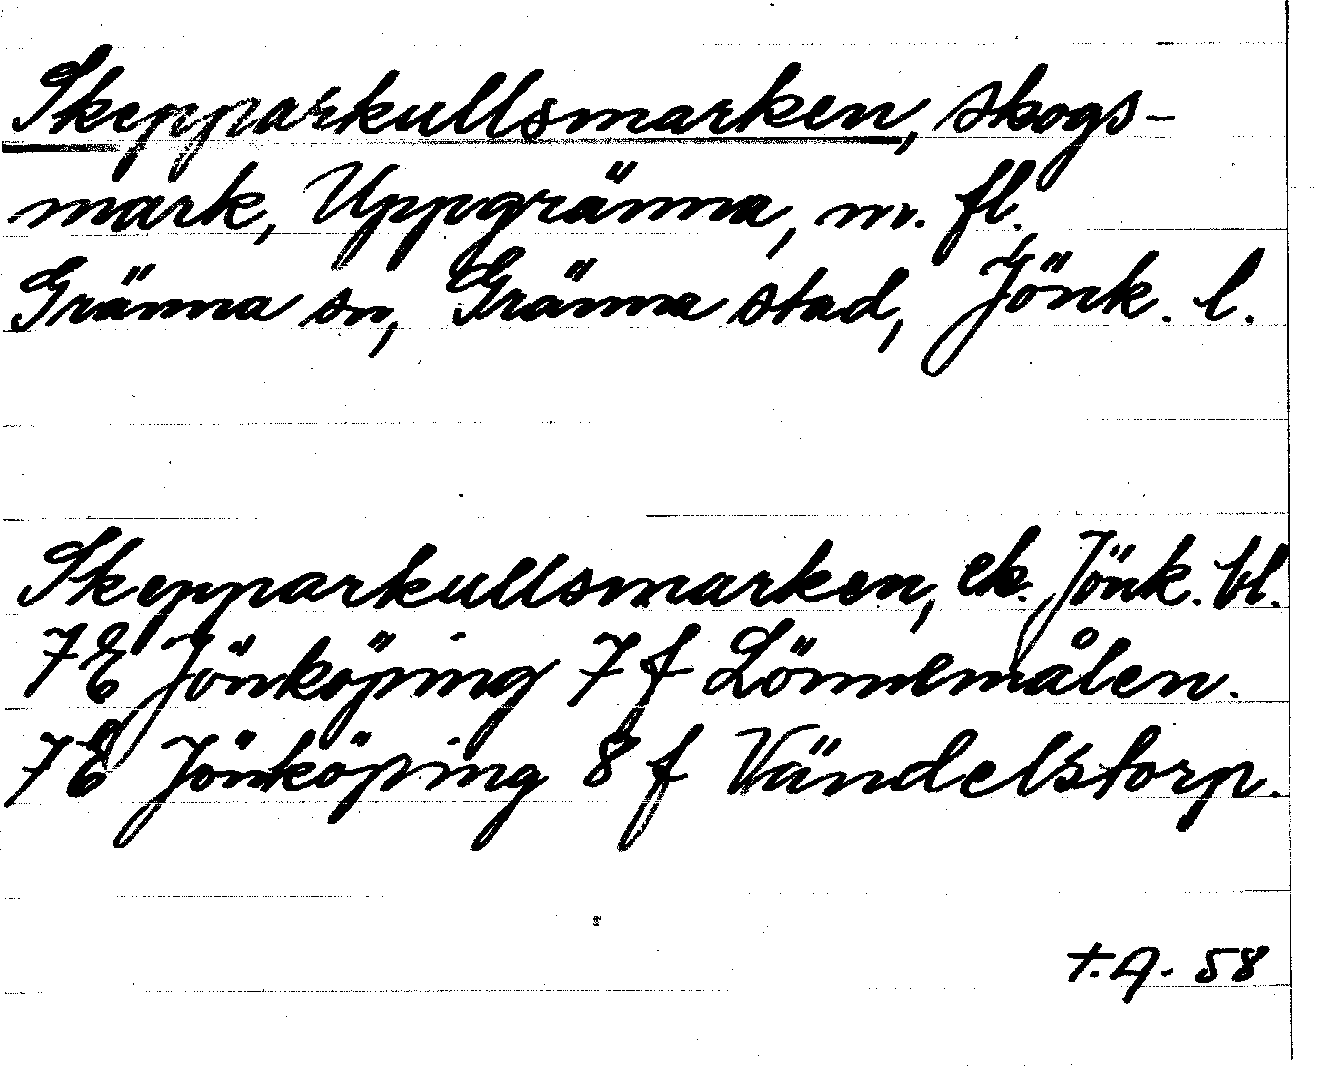 Skepparkullsmarken, skogs-
mark, Uppgränna, m. fl.
Gränna sn, Gränna stad, Jönk. l.
Skepparkullsmarken, ek. Jönk. bl.
7E Jönköping 7f Lönnemålen.
7E Jönköping 8f Vändelstorp.
58